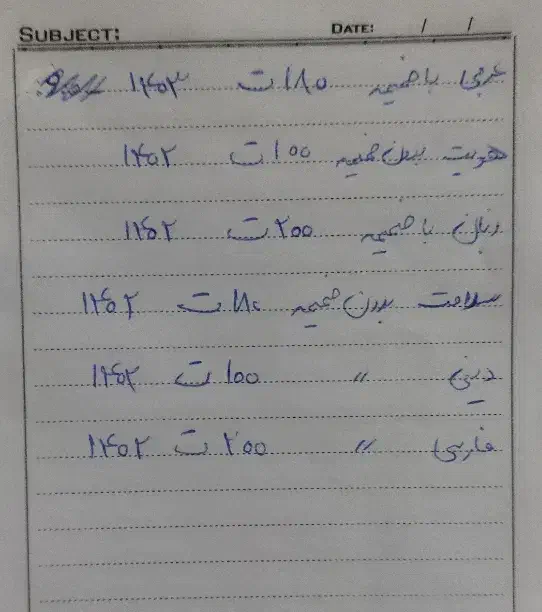 SUBJECT: DATE: / /
عربی با ضمیمه ۱۸۰ ت ۱۴۰۳
هویت بدون ضمیمه ۱۰۰ ت ۱۴۰۲
زبان با ضمیمه ۲۰۰ ت ۱۴۰۲
سلامت بدون ضمیمه ۱۸۰ ت ۱۴۰۲
دینی " ۱۰۰ ت ۱۴۰۲
فارسی " ۲۰۰ ت ۱۴۰۲